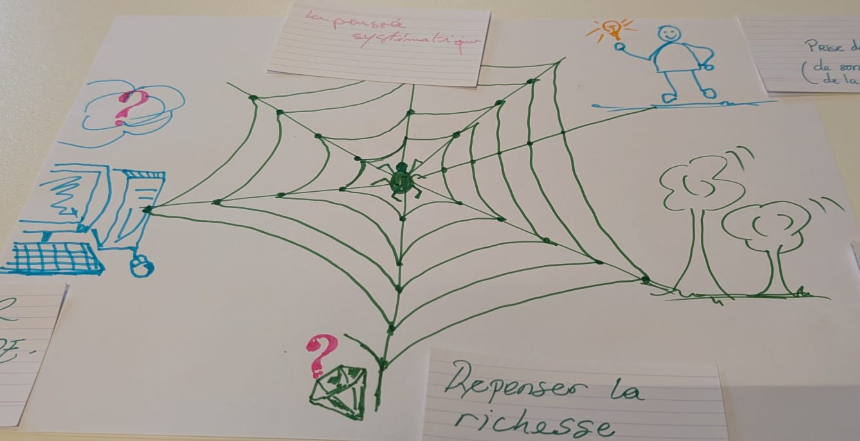 La pensée
systématique
Prise de
(de son
de la
?
?
Repenser la
richesse